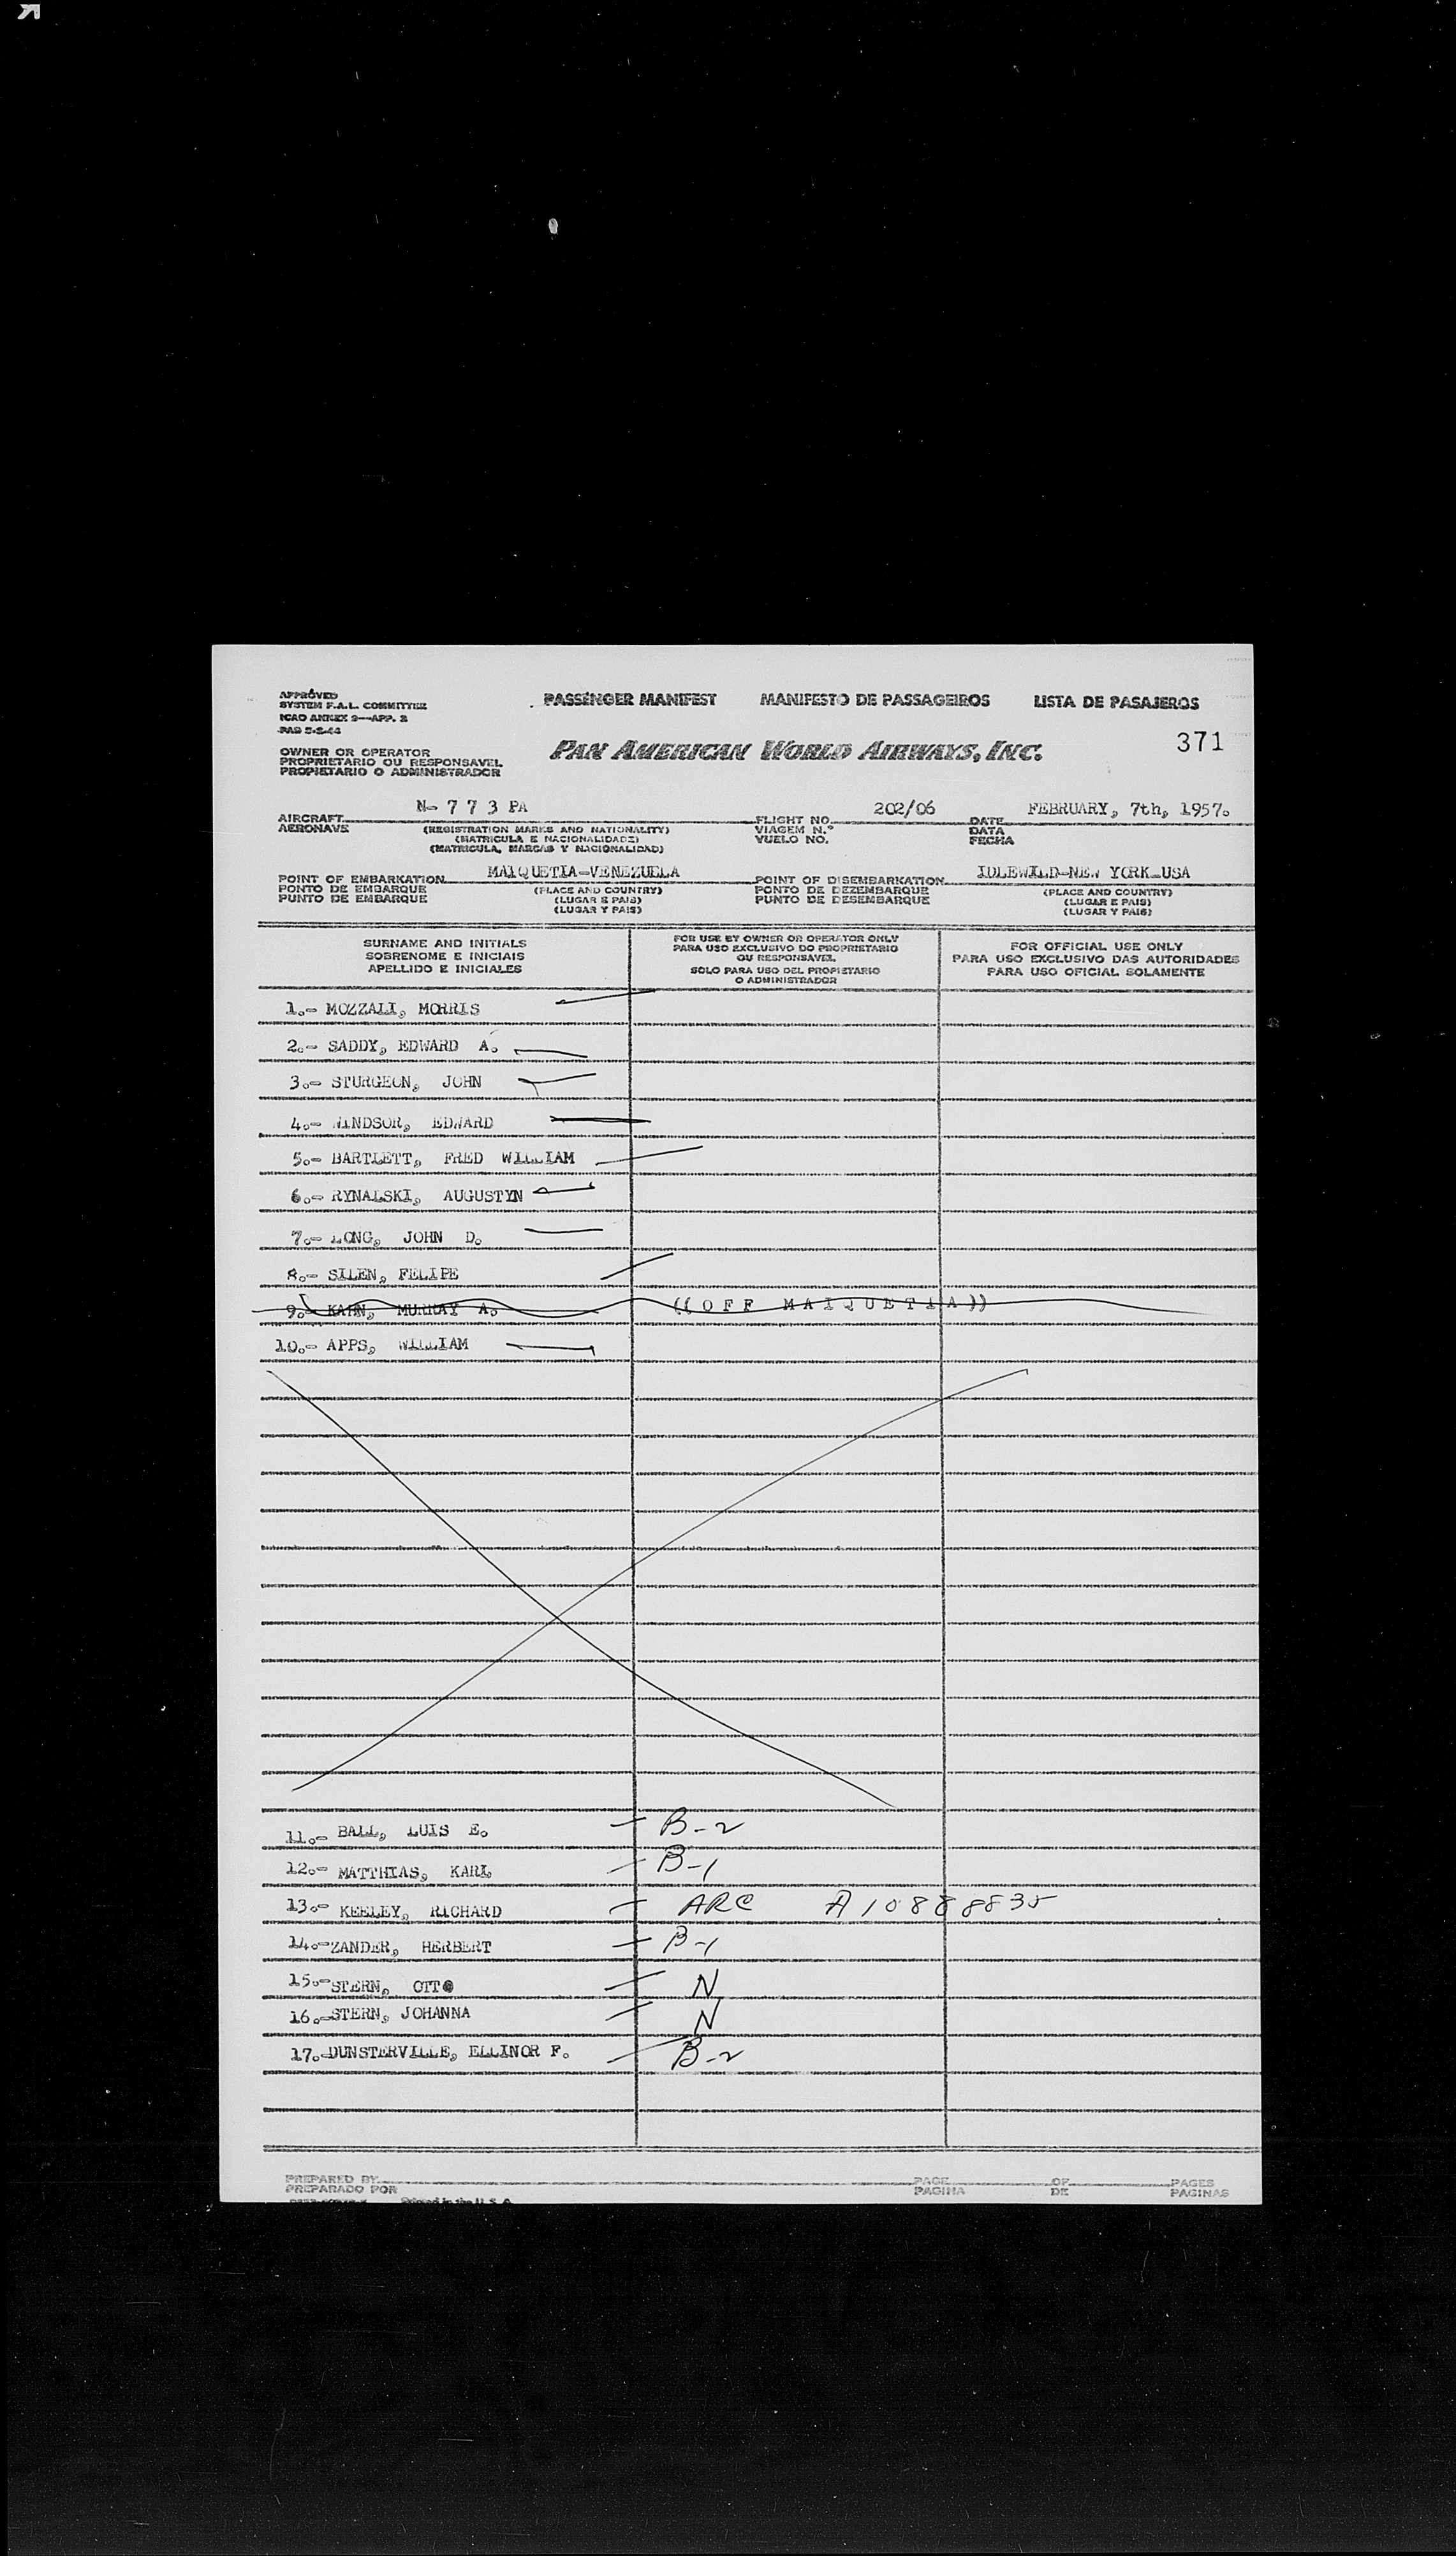 APPROVED
SYSTEM F.A.L. COMMITTEE
ICAO ANNEX 9—APP. 2
PASSENGER MANIFEST MANIFESTO DE PASSAGEIROS LISTA DE PASAJEROS
371
OWNER OR OPERATOR
PROPRIETARIO OU RESPONSAVEL
PROPIETARIO O ADMINISTRADOR
PAN AMERICAN WORLD AIRWAYS, INC.
N- 7 7 3 PA 202/06 FEBRUARY, 7th, 1957.
AIRCRAFT FLIGHT NO. DATE
AERONAVE (REGISTRATION MARKS AND NATIONALITY) VIAGEM N.° DATA
(MATRICULA E NACIONALIDADE) VUELO NO. FECHA
(MATRICULA, MARCAS Y NACIONALIDAD)
MAIQUETIA-VENEZUELA IDLEWILD-NEW YORK-USA
POINT OF EMBARKATION POINT OF DISEMBARKATION
PONTO DE EMBARQUE (PLACE AND COUNTRY) PONTO DE DEZEMBARQUE (PLACE AND COUNTRY)
PUNTO DE EMBARQUE (LUGAR E PAIS) PUNTO DE DESEMBARQUE (LUGAR E PAIS)
(LUGAR Y PAIS) (LUGAR Y PAIS)
SURNAME AND INITIALS
SOBRENOME E INICIAIS
APELLIDO E INICIALES
FOR USE BY OWNER OR OPERATOR ONLY
PARA USO EXCLUSIVO DO PROPRIETARIO
OU RESPONSAVEL
SOLO PARA USO DEL PROPIETARIO
O ADMINISTRADOR
FOR OFFICIAL USE ONLY
PARA USO EXCLUSIVO DAS AUTORIDADES
PARA USO OFICIAL SOLAMENTE
1.- MOZZALI, MORRIS
2.- SADDY, EDWARD A.
3.- STURGEON, JOHN
4.- WINDSOR, EDWARD
5.- BARTLETT, FRED WILLIAM
6.- RYNALSKI, AUGUSTYN
7.- LONG, JOHN D.
8.- SILEN, FELIPE
9.- KAHN, MURRAY A. ((O F F M A I Q U E T I A))
10.- APPS, WILLIAM
11.- BALL, LUIS E. B-2
12.- MATTHIAS, KARL B-1
13.- KEELEY, RICHARD ARC A10888835
14.- ZANDER, HERBERT B-1
15.- STERN, OTTO N
16.- STERN, JOHANNA N
17.- DUNSTERVILLE, ELLINOR F. B-2
PREPARED BY PAGE OF PAGES
PREPARADO POR PAGINA DE PAGINAS
Printed in the U. S. A.